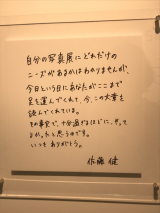 自分の写真展にどれだけの
ニーズがあるかはわかりませんが、
今日という日にあなたがここまで
足を運んでくれて、今、この文章を
読んでくれている。
その事実で、十分過ぎるほどに、やって
よかったと思うのです。
いつもありがとう。
佐藤 健